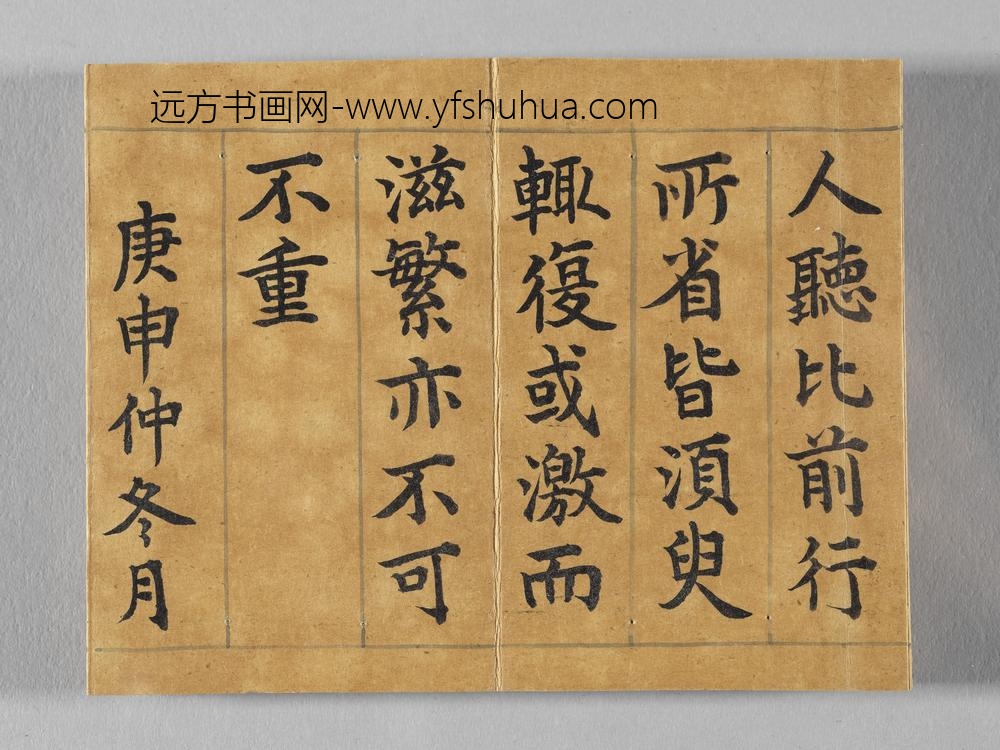 远方书画网-www.yfshuhua.com
人聽比前行
所省皆須臾
輙復或激而
滋繁亦不可
不重
庚申仲冬月